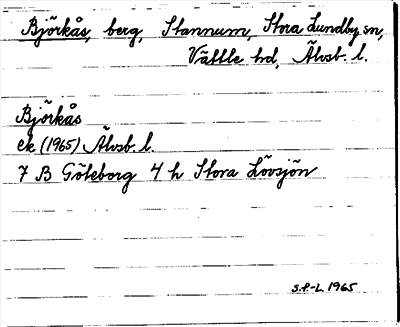 Björkås, berg, Stannum, Stora Lundby sn,
Vättle hd, Älvsb. l.
Björkås
ek (1965) Älvsb. l.
7 B Göteborg 4 h Stora Lövsjön
S.P-L. 1965